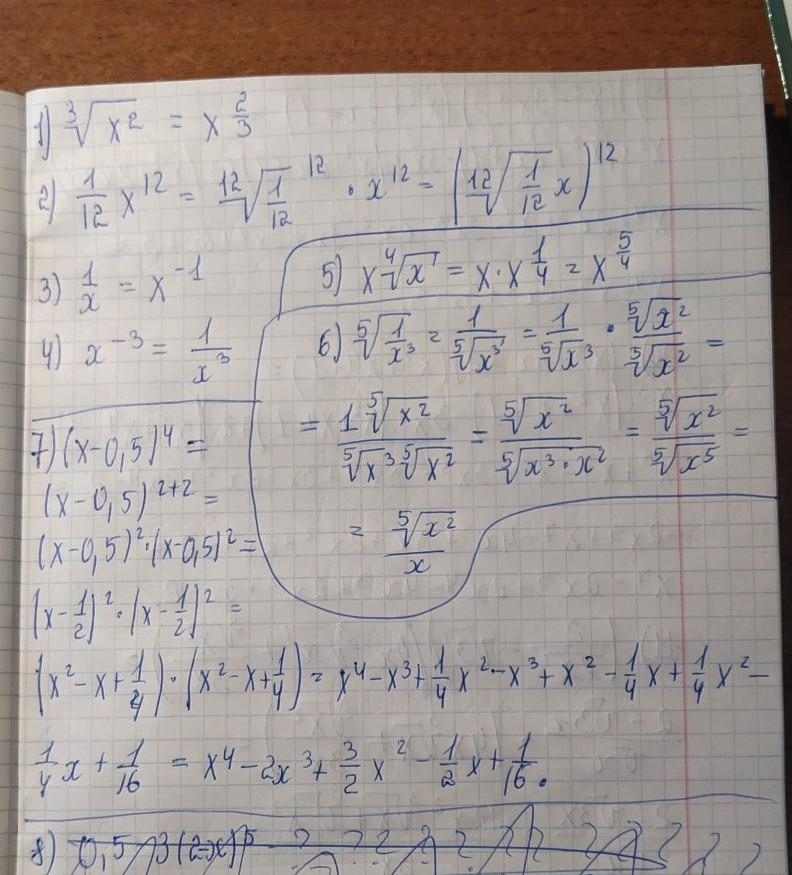 1) ∛x² = x^(2/3)
2) 1/12 x¹² = ¹²√(1/12)¹² · x¹² = (¹²√(1/12) x)¹²
3) 1/x = x⁻¹
4) x⁻³ = 1/x³
5) x ⁴√x = x · x^(1/4) = x^(5/4)
6) ⁵√(1/x³) = 1/⁵√x³ = 1/⁵√x³ · ⁵√x²/⁵√x² =
= 1 ⁵√x²/(⁵√x³ ⁵√x²) = ⁵√x²/⁵√(x³·x²) = ⁵√x²/⁵√x⁵ =
= ⁵√x²/x
7) (x-0,5)⁴ =
(x-0,5)²⁺² =
(x-0,5)²·(x-0,5)² =
(x-1/2)²·(x-1/2)² =
(x²-x+1/4)·(x²-x+1/4) = x⁴-x³+1/4x²-x³+x²-1/4x+1/4x²-
1/4x+1/16 = x⁴-2x³+3/2x²-1/2x+1/16.
8)